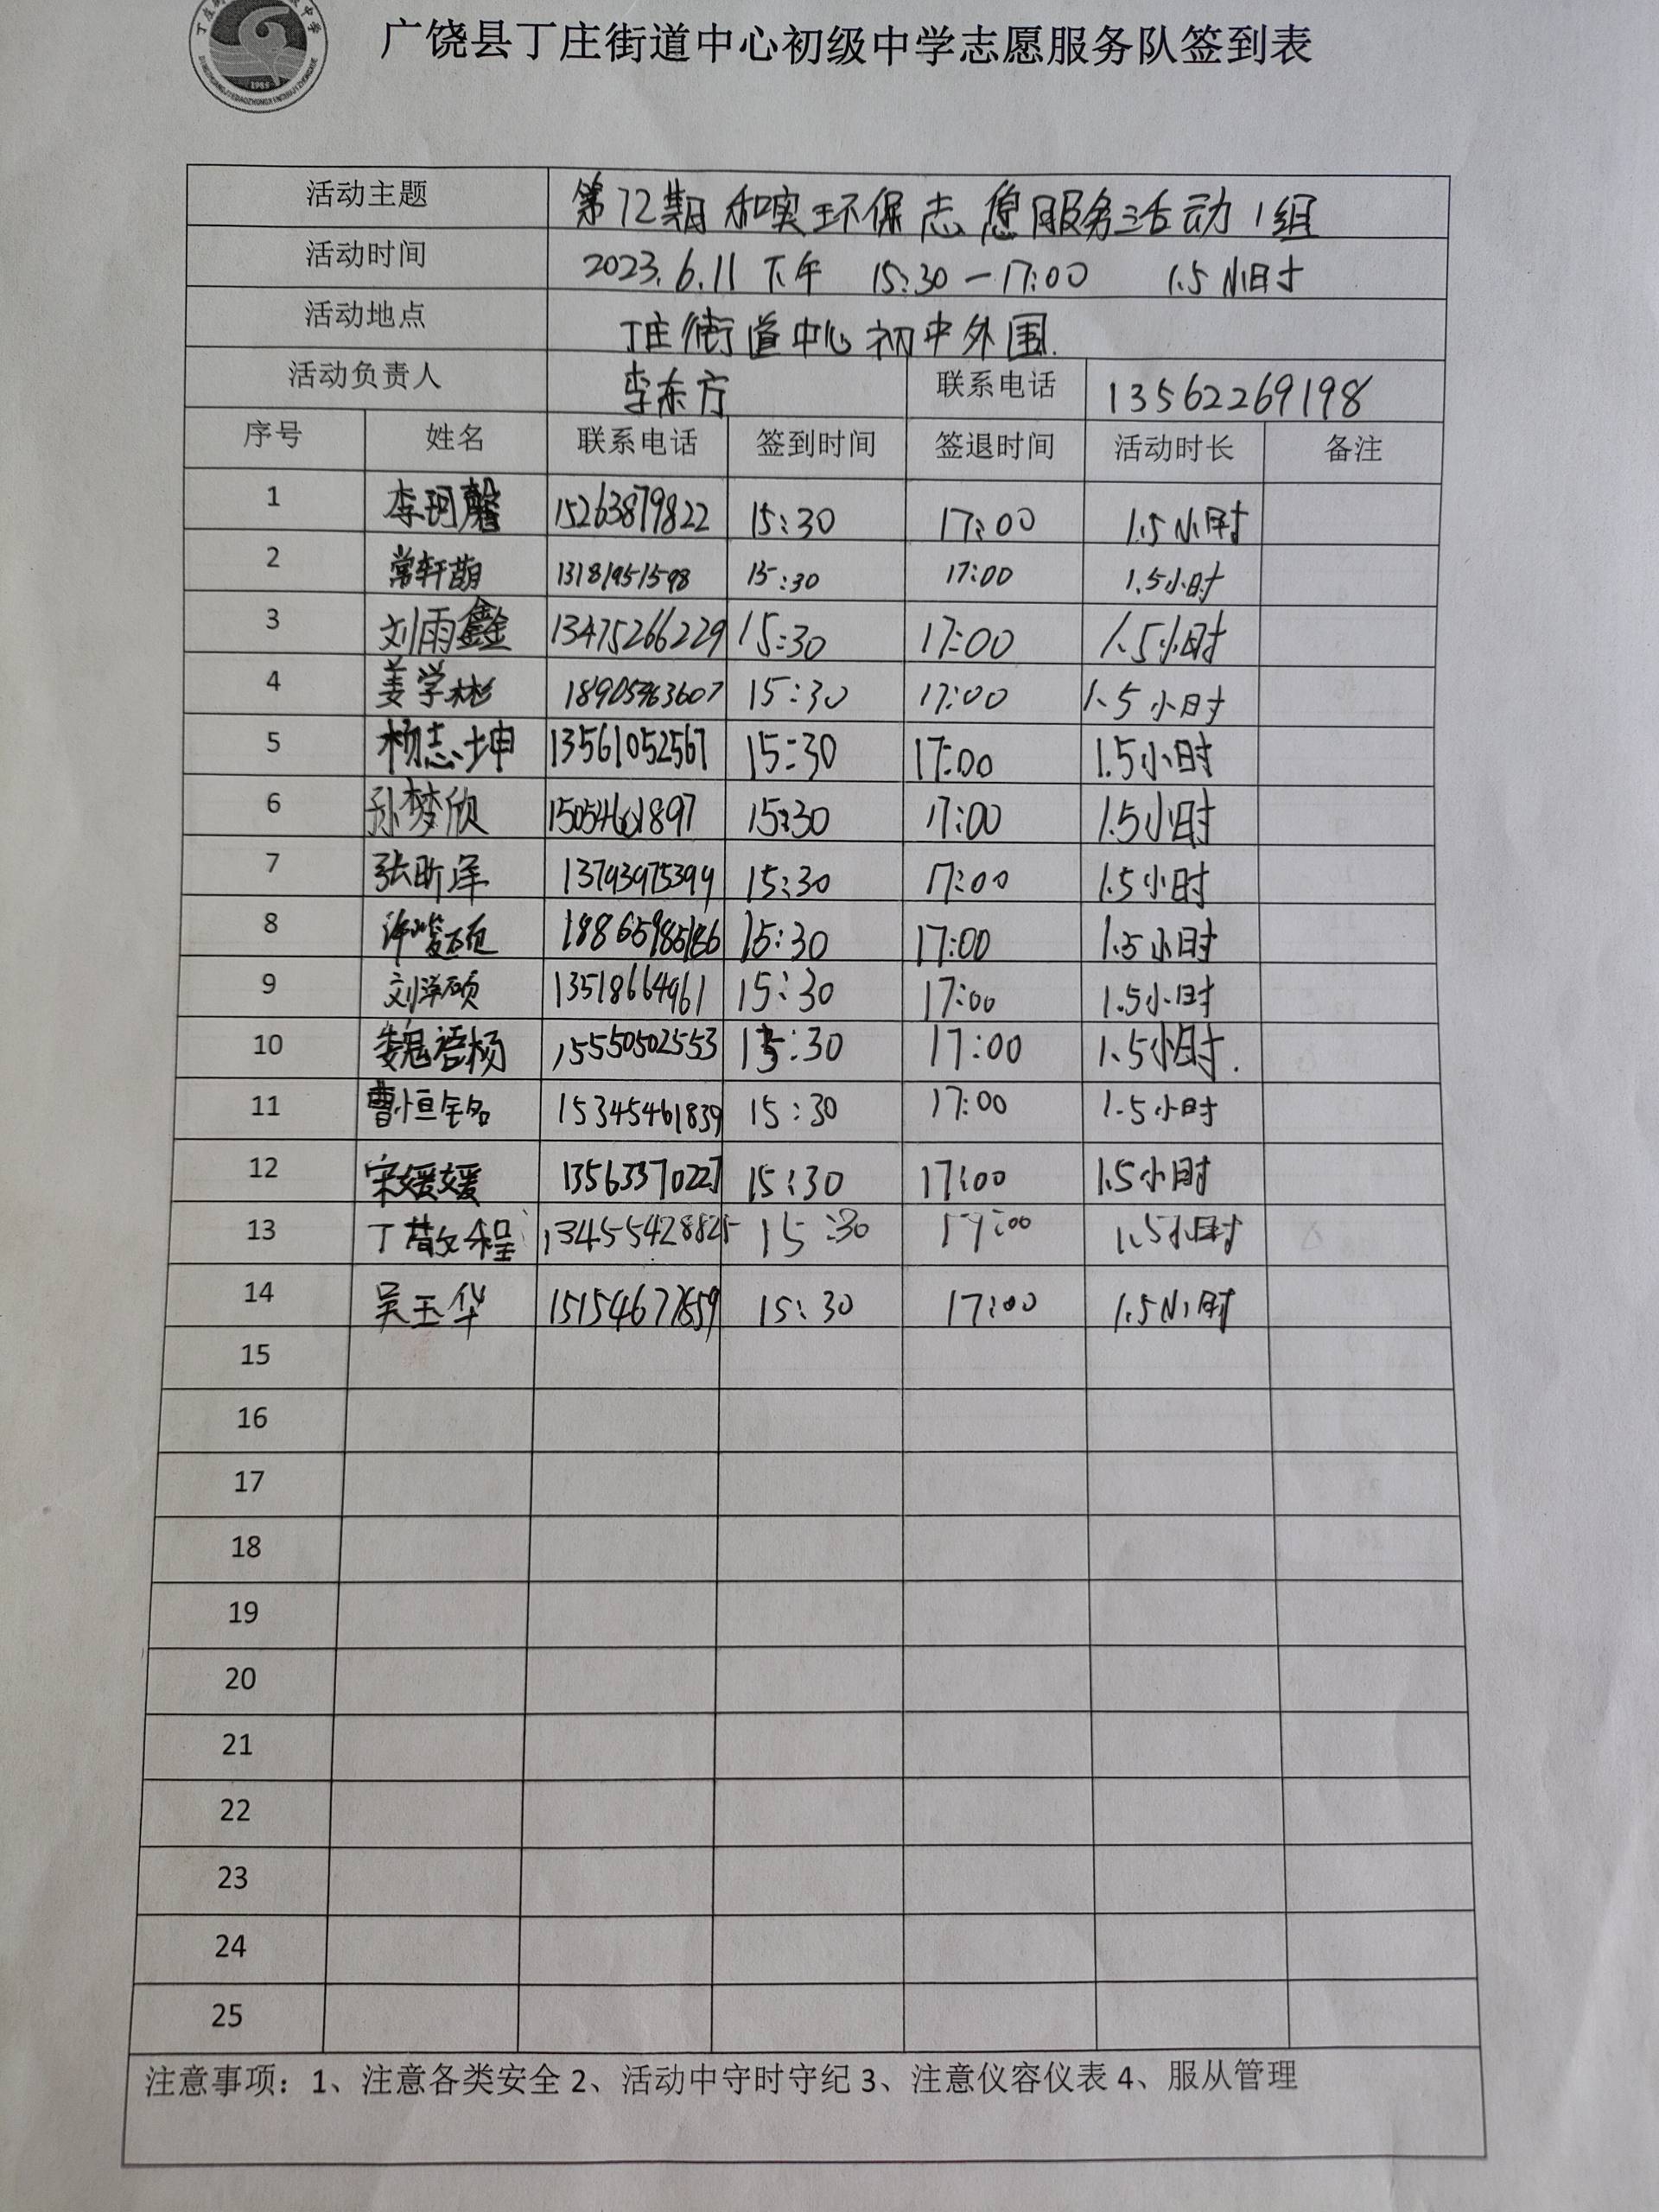 广饶县丁庄街道中心初级中学志愿服务队签到表
1985
活动主题 第72期和实环保志愿服务活动1组
活动时间 2023.6.11 下午 15:30-17:00 1.5小时
活动地点 丁庄街道中心初中外围.
活动负责人 李东方 联系电话 13562269198
序号 姓名 联系电话 签到时间 签退时间 活动时长 备注
1 李珂馨 15263879822 15:30 17:00 1.5小时
2 常轩萌 13181951598 15:30 17:00 1.5小时
3 刘雨鑫 13475266229 15:30 17:00 1.5小时
4 姜学彬 15:30 17:00 1.5小时
5 杨志坤 13561052567 15:30 17:00 1.5小时
6 孙梦欣 15054601897 15:30 17:00 1.5小时
7 张昕洋 13793975399 15:30 17:00 1.5小时
8 许峻硕 15:30 17:00 1.5小时
9 刘泽硕 13518664961 15:30 17:00 1.5小时
10 15550502553 15:30 17:00 1.5小时.
11 曹恒铭 15345461839 15:30 17:00 1.5小时
12 宋媛媛 13563370227 15:30 17:00 1.5小时
13 丁 程 13455428825 15:30 17:00 1.5小时
14 吴玉华 15:30 17:00 1.5小时
15
16
17
18
19
20
21
22
23
24
25
注意事项：1、注意各类安全 2、活动中守时守纪 3、注意仪容仪表 4、服从管理